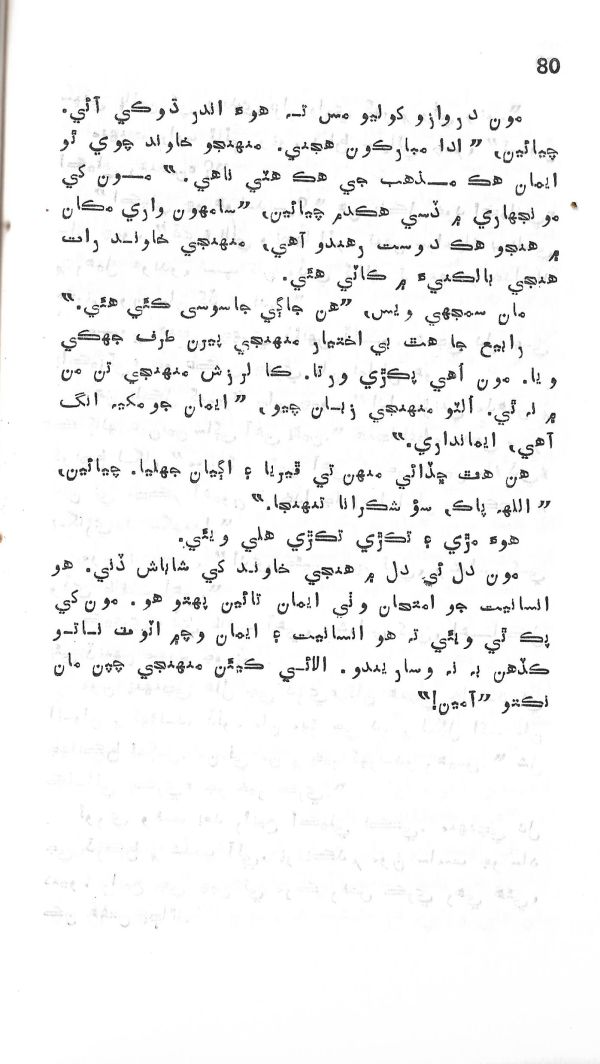 80
مون دروازو کوليو مس تہ هوءَ اندر ڊوڪي آئي.
چيائين، ”ادا مبارڪون هجنئي. منهنجو خاوند چوي ٿو
ايمان هڪ مذهب جي هڪ هٽي ناهي.“ مون کي
مونجهاري ۾ ڏسي هڪدم چيائين، ”سامهون واري مڪان
۾ هنجو هڪ دوست رهندو آهي، منهنجي خاوند رات
هنجي بالڪنيءَ ۾ کاٽي هئي.
مان سمجهي ويس، ”هن جاڳي جاسوسي ڪئي هئي.“
رابيع جا هٿ بي اختيار منهنجي پيرن طرف جهڪي
ويا. مون اهي پڪڙي ورتا. ڪا لرزش منهنجي تن من
۾ نہ ٿي. الٽو منهنجي زبان چيو، ”ايمان جو مکيہ انگ
آهي، ايمانداري.“
هن هٿ ڇڏائي منهن تي ڦيريا ۽ اڳيان جهليا. چيائين،
”اللھ پاڪ، سؤ شڪرانا تنهنجا.“
هوءَ مڙي ۽ تڪڙي تڪڙي هلي ويئي.
مون دل ئي دل ۾ هنجي خاوند کي شاباش ڏني. هو
انسانيت جو امتحان وٺي ايمان تائين پهتو هو. مون کي
پڪ ٿي ويئي تہ هو انسانيت ۽ ايمان وچ ۾ اٽوٽ ناتو
ڪڏهن بہ نہ وساريندو. الائي ڪيئن منهنجي چپن مان
نڪتو ”آمين!“